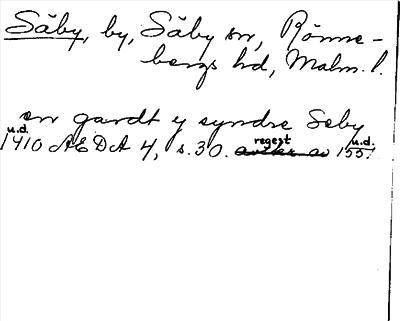 Säby, by, Säby sn, Rönne-
bergs hd, Malm. l.
en gardt y syndre Seby
u.d. regest u.d.
1410 AEDA 4, s. 30. avskr av 1551